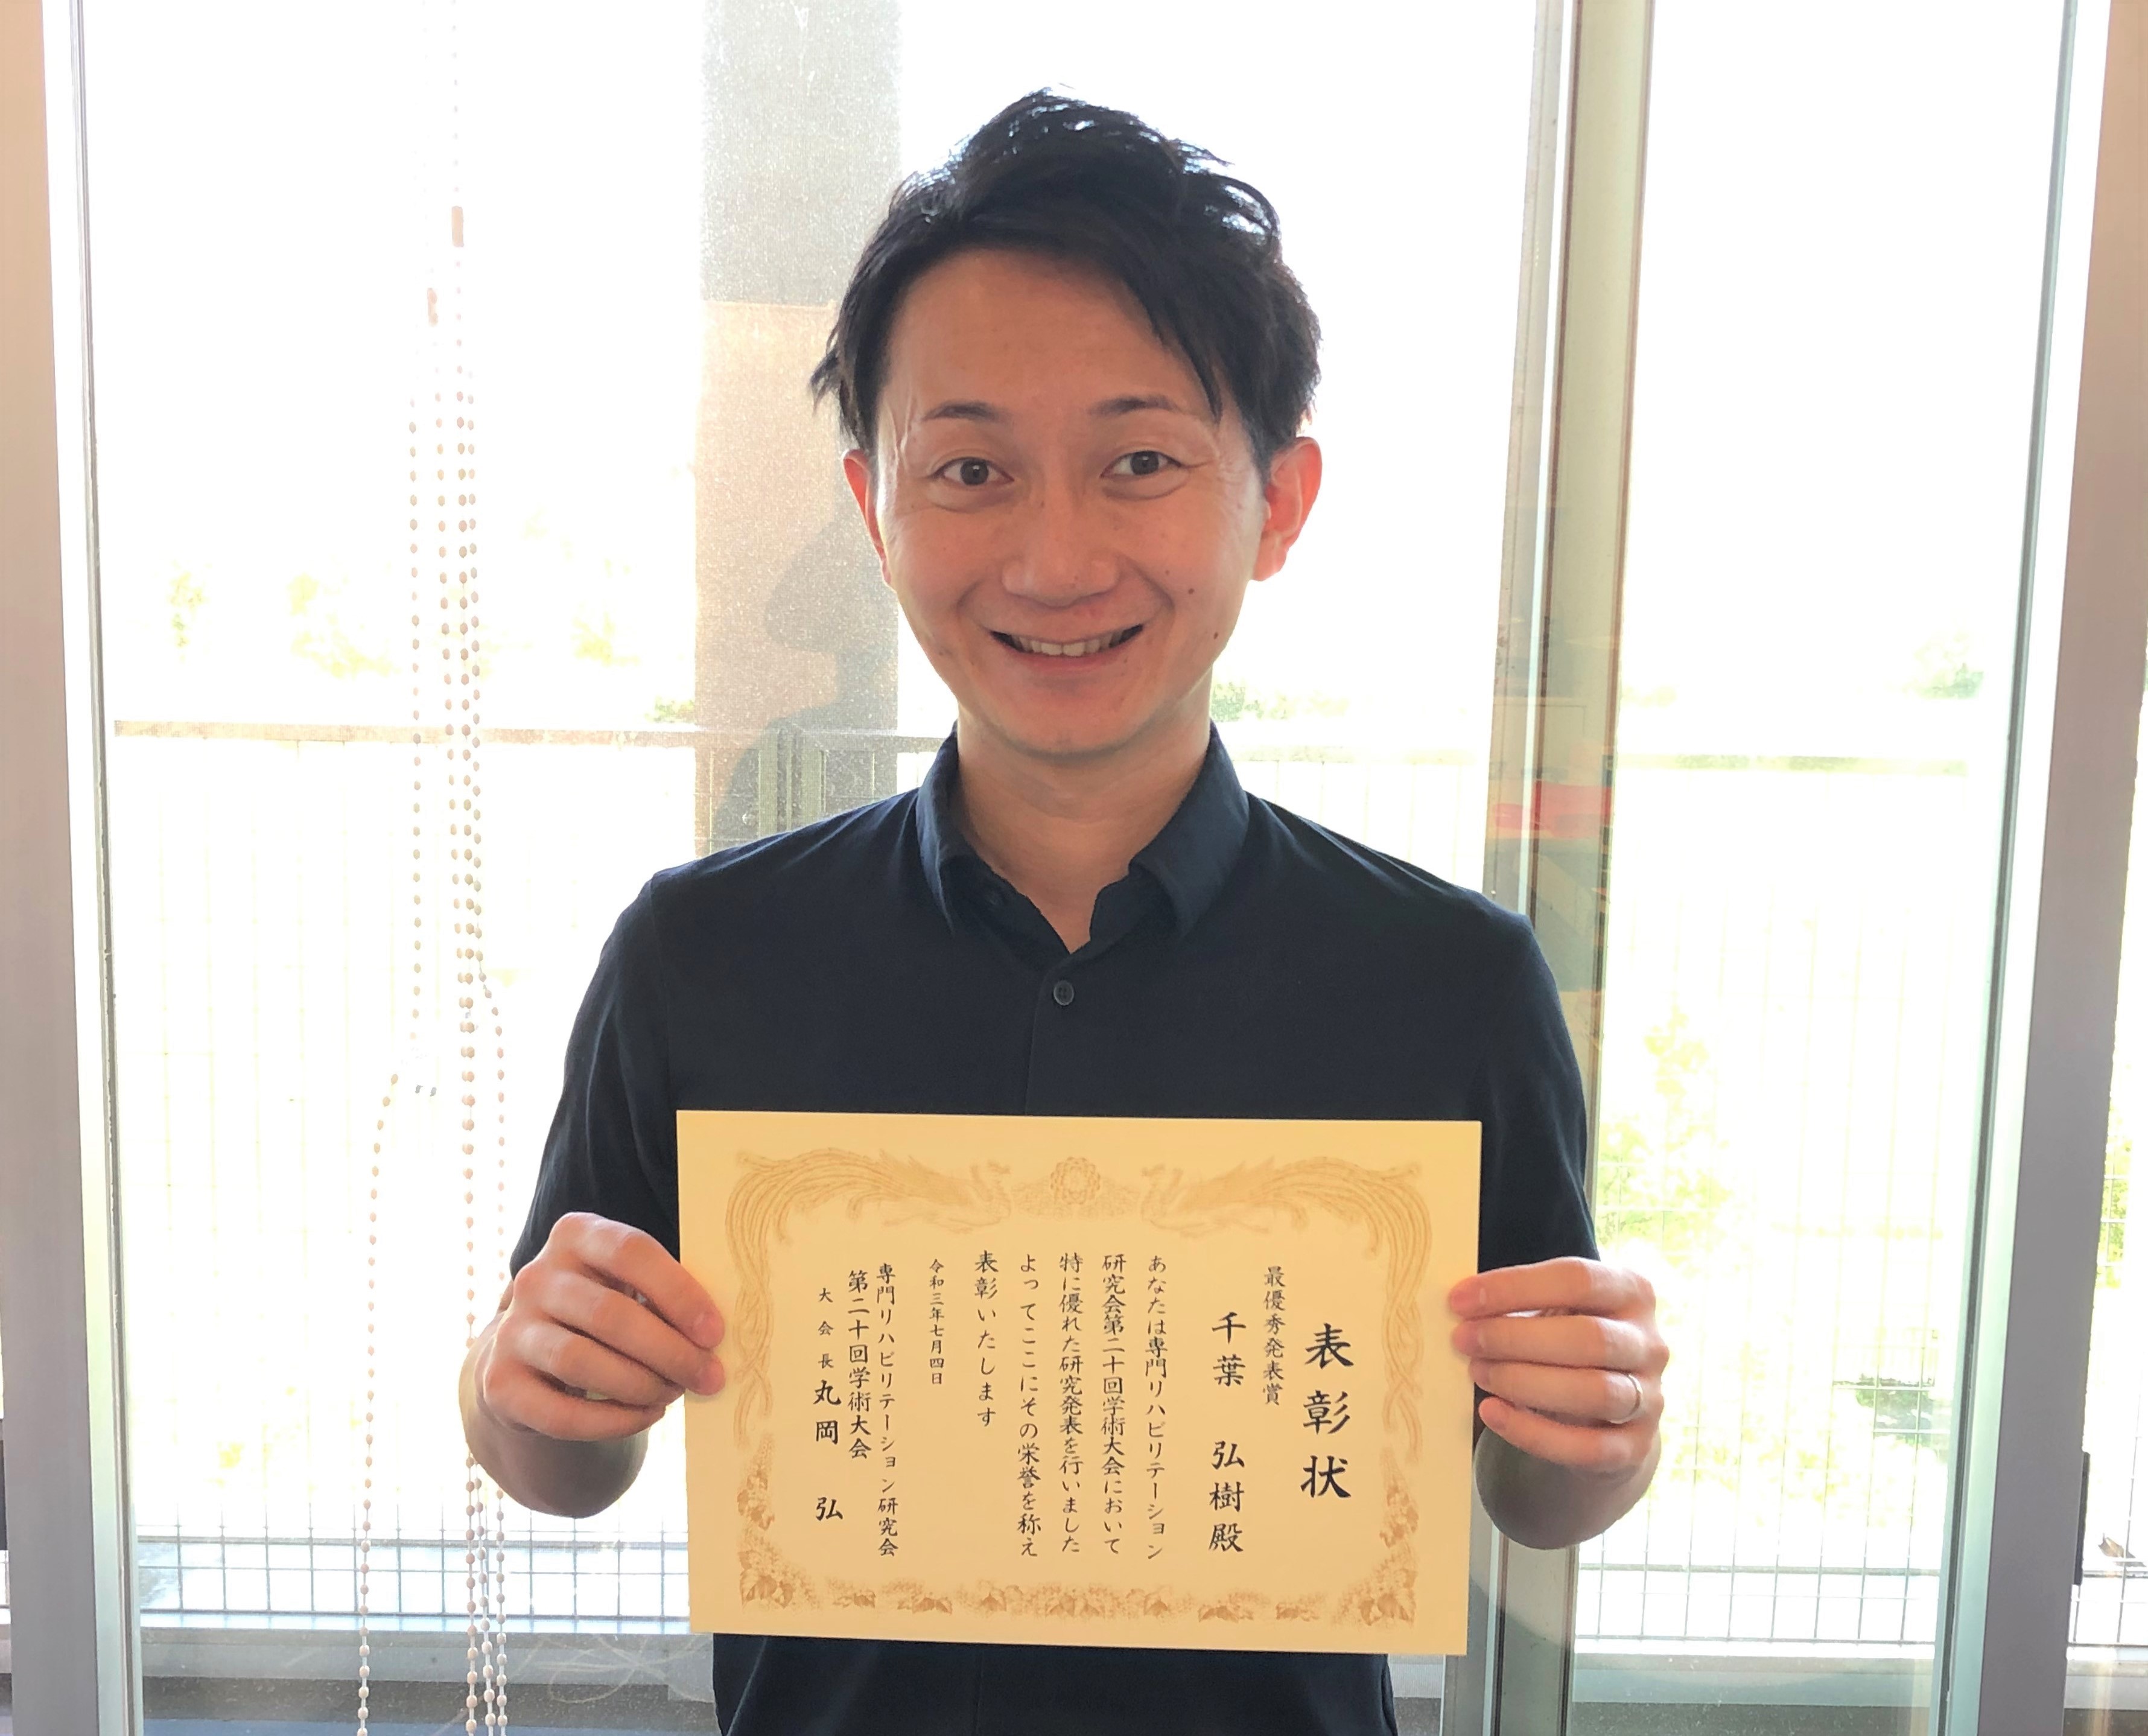 表彰状
最優秀発表賞
千葉 弘樹殿
あなたは専門リハビリテーション
研究会第二十回学術大会において
特に優れた研究発表を行いました
よってここにその栄誉を称え
表彰いたします
令和三年七月四日
専門リハビリテーション研究会
第二十回学術大会
大会長 丸岡 弘